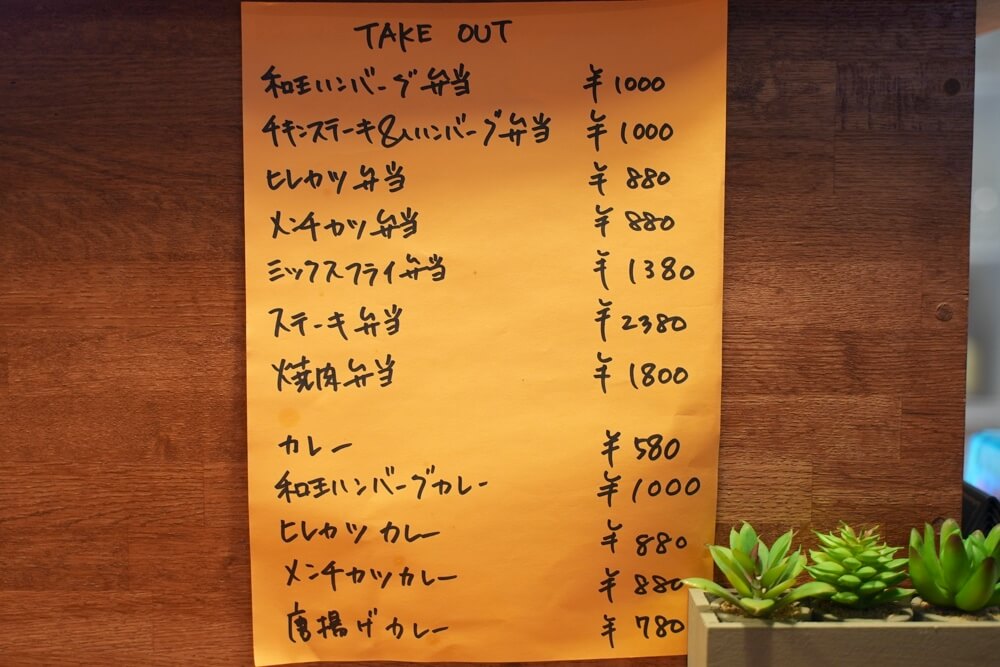 TAKE OUT
和王ハンバーグ弁当 ¥1000
チキンステーキ&ハンバーグ弁当 ¥1000
ヒレカツ弁当 ¥880
メンチカツ弁当 ¥880
ミックスフライ弁当 ¥1380
ステーキ弁当 ¥2380
焼肉弁当 ¥1800
カレー ¥580
和王ハンバーグカレー ¥1000
ヒレカツカレー ¥880
メンチカツカレー ¥880
唐揚げカレー ¥780